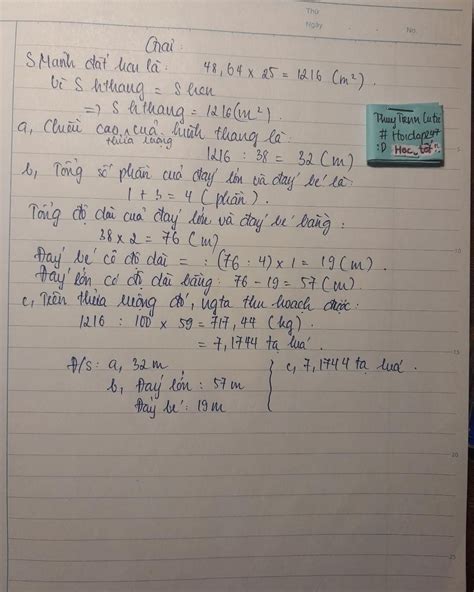 Thứ
Ngày No.
Giải:
S Mảnh đất hcn là: 48,64 x 25 = 1216 (m²)
Vì S hthang = S hcn
=> S hthang = 1216 (m²).
a, Chiều cao của hình thang là:
thửa ruộng
1216 : 38 = 32 (m)
b, Tổng số phần của đáy lớn và đáy bé là:
1 + 3 = 4 (phần).
Tổng độ dài của đáy lớn và đáy bé bằng:
38 x 2 = 76 (m)
Đáy bé có độ dài = : (76 : 4) x 1 = 19 (m).
Đáy lớn có độ dài bằng: 76 - 19 = 57 (m).
c, Trên thửa ruộng đó, ngta thu hoạch được:
1216 : 100 x 59 = 717,44 (kg).
= 7,1744 tạ lúa.
Đ/s: a, 32 m
b, Đáy lớn: 57 m
Đáy bé: 19 m
c, 7,1744 tạ lúa.
# Hoidap247
:D Học tốt
10
15
20
25